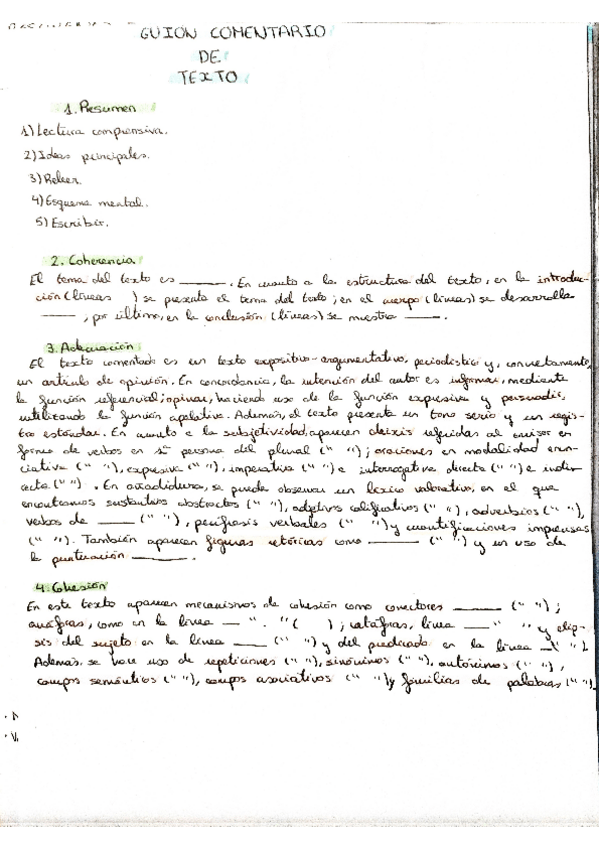 GUION COMENTARIO
DE
TEXTO
1. Resumen
1) Lectura comprensiva.
2) Ideas principales.
3) Releer.
4) Esquema mental.
5) Escribir.
2. Coherencia
El tema del texto es ______. En cuanto a la estructura del texto, en la introduc-
ción (líneas ) se presenta el tema del texto; en el cuerpo (líneas) se desarrolla
_____, por último, en la conclusión (líneas) se muestra _____.
3. Adecuación
El texto comentado es un texto expositivo-argumentativo, periodístico y, concretamente,
un artículo de opinión. En concordancia, la intención del autor es informar, mediante
la función referencial; opinar, haciendo uso de la función expresiva y persuadir,
utilizando la función apelativa. Además, el texto presenta un tono serio y un regis-
tro estándar. En cuanto a la subjetividad, aparecen deixis referidas al emisor en
forma de verbos en 1ª persona del plural (" "); oraciones en modalidad enun-
ciativa (" "), expresiva (" "), imperativa (" ") e interrogativa directa (" ") e indir-
ecta (" "). En añadidura, se puede observar un léxico valorativo, en el que
encontramos sustantivos abstractos (" "), adjetivos calificativos (" "), adverbios (" "),
verbos de _____ (" "), perífrasis verbales (" ") y cuantificaciones imprecisas
(" "). También aparecen figuras retóricas como ______ (" ") y un uso de
la puntuación ______.
4. Cohesión
En este texto aparecen mecanismos de cohesión como conectores _____ (" ");
anáforas, como en la línea __ " " ( ); catáforas, línea __ " " y elip-
sis del sujeto en la línea ___ (" ") y del predicado en la línea _ (" ").
Además, se hace uso de repeticiones (" "), sinónimos (" "), antónimos (" "),
campos semánticos (" "), campos asociativos (" ") y familias de palabras (" ").